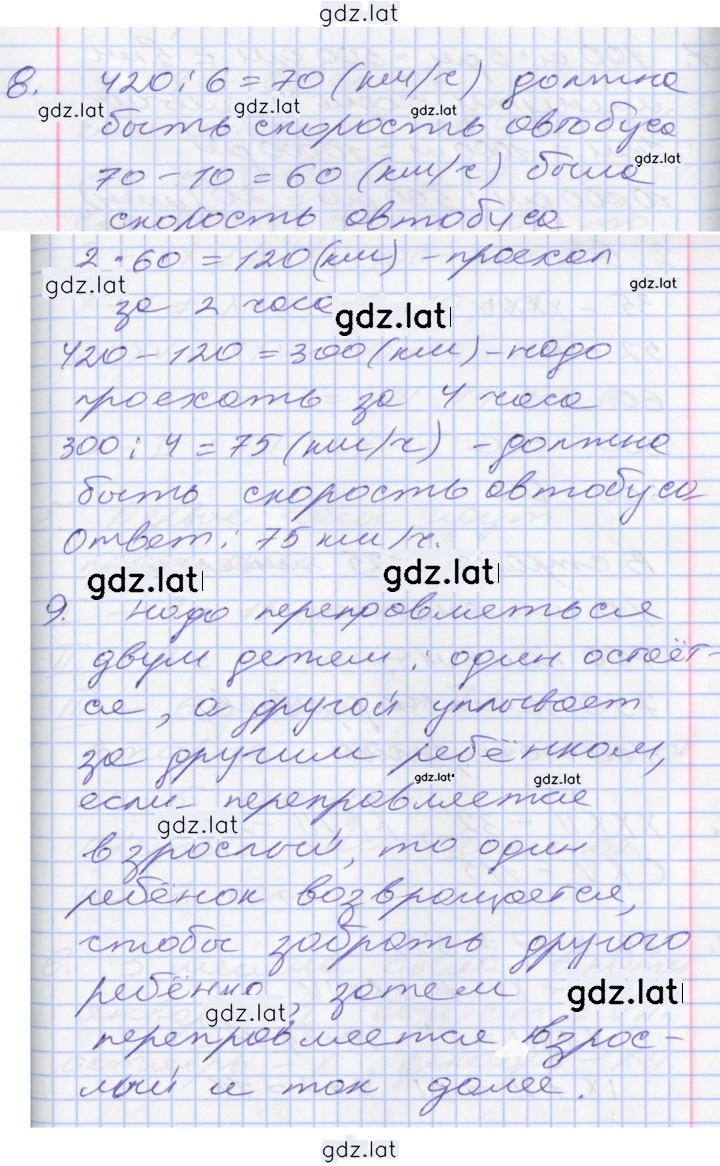 gdz.lat
8. 420 : 6 = 70 (км/ч) должна
gdz.lat gdz.lat gdz.lat
быть скорость автобуса
gdz.lat
70 - 10 = 60 (км/ч) была
скорость автобуса
2 · 60 = 120 (км) - проехал
gdz.lat gdz.lat
за 2 часа
gdz.lat
420 - 120 = 300 (км) - надо
проехать за 4 часа
300 : 4 = 75 (км/ч) - должна
быть скорость автобуса
Ответ: 75 км/ч.
gdz.lat gdz.lat
9. Надо переправляться
двум детям: один остаёт-
ся, а другой уплывает
за другим ребёнком,
gdz.lat gdz.lat
если переправляется
gdz.lat
взрослый, то один
ребёнок возвращается,
чтобы забрать другого
ребёнка, затем
gdz.lat gdz.lat
переправляется взрос-
лый и так далее.
gdz.lat